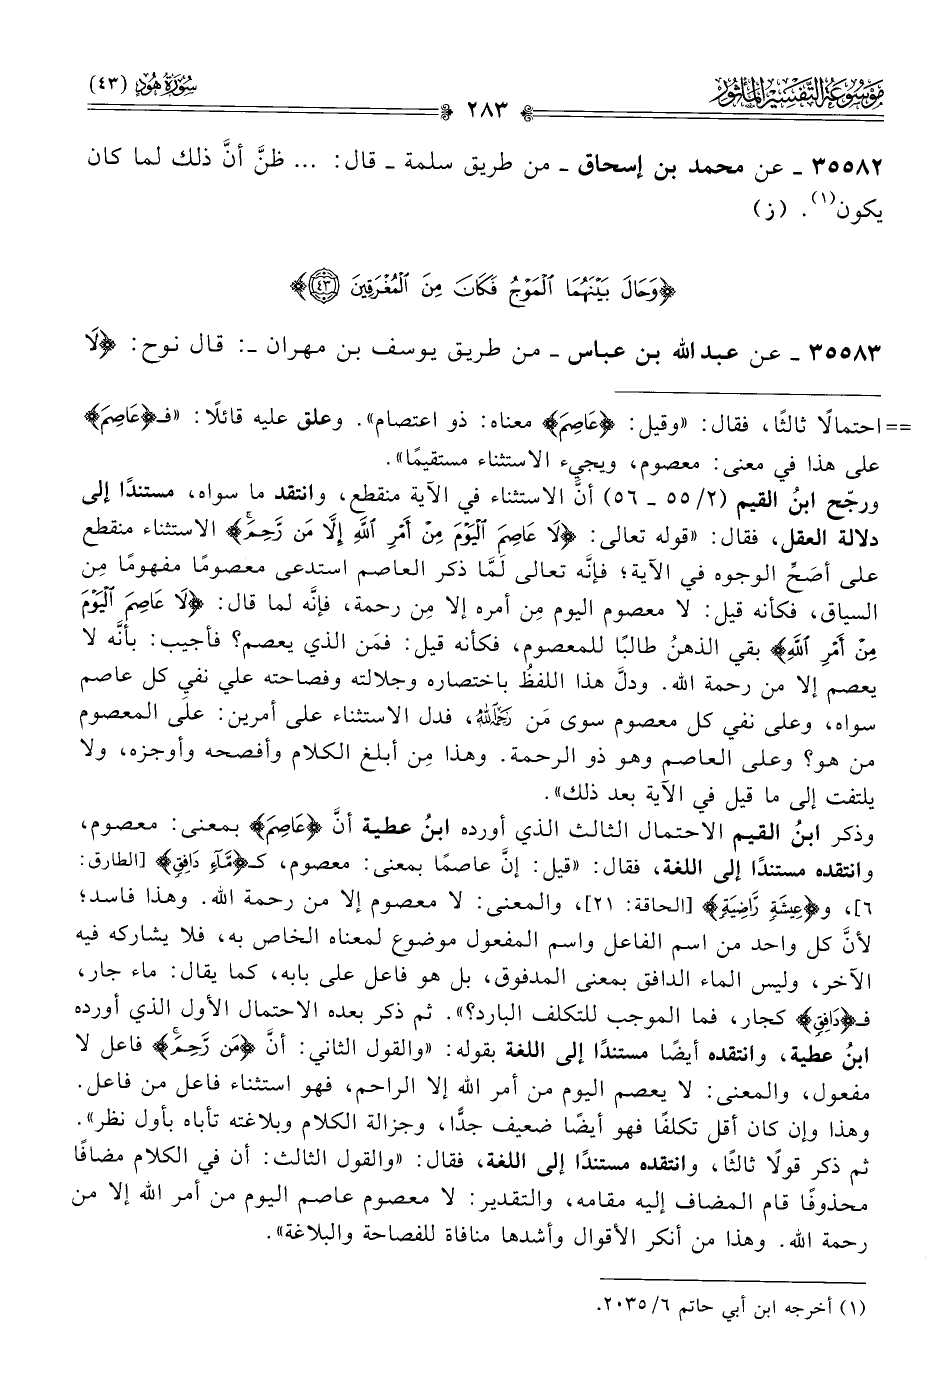 مَوْسُوعَةُ التَّفْسِيرِ المَأْثُورِ
سُورَةُ هُودٍ (٤٣)
٢٨٣
٣٥٥٨٢ ـ عن محمد بن إسحاق ـ من طريق سلمة ـ قال: ... ظنَّ أنَّ ذلك لما كان
يكون(١). (ز)
﴿وَحَالَ بَيْنَهُمَا ٱلْمَوْجُ فَكَانَ مِنَ ٱلْمُغْرَقِينَ ٤٣﴾
٣٥٥٨٣ ـ عن عبد الله بن عباس ـ من طريق يوسف بن مهران ـ: قال نوح: ﴿لَا
== احتمالًا ثالثًا، فقال: «وقيل: ﴿عَاصِمَ﴾ معناه: ذو اعتصام». وعلق عليه قائلًا: «فـ﴿عَاصِمَ﴾
على هذا في معنى: معصوم، ويجيء الاستثناء مستقيمًا».
ورجّح ابنُ القيم (٢/ ٥٥ ـ ٥٦) أنَّ الاستثناء في الآية منقطع، وانتقد ما سواه، مستندًا إلى
دلالة العقل، فقال: «قوله تعالى: ﴿لَا عَاصِمَ ٱلْيَوْمَ مِنْ أَمْرِ ٱللَّهِ إِلَّا مَن رَّحِمَۚ﴾ الاستثناء منقطع
على أصَحِّ الوجوه في الآية؛ فإنَّه تعالى لمَّا ذكر العاصم استدعى معصومًا مفهومًا مِن
السياق، فكأنه قيل: لا معصوم اليوم مِن أمره إلا مِن رحمة، فإنَّه لما قال: ﴿لَا عَاصِمَ ٱلْيَوْمَ
مِنْ أَمْرِ ٱللَّهِ﴾ بقي الذهنُ طالبًا للمعصوم، فكأنه قيل: فمَن الذي يعصم؟ فأجيب: بأنَّه لا
يعصم إلا من رحمة الله. ودلَّ هذا اللفظُ باختصاره وجلالته وفصاحته علي نفي كل عاصم
سواه، وعلى نفي كل معصوم سوى مَن رَحِمَهُ الله، فدل الاستثناء على أمرين: على المعصوم
من هو؟ وعلى العاصم وهو ذو الرحمة. وهذا مِن أبلغ الكلام وأفصحه وأوجزه، ولا
يلتفت إلى ما قيل في الآية بعد ذلك».
وذكر ابنُ القيم الاحتمال الثالث الذي أورده ابنُ عطية أنَّ ﴿عَاصِمَ﴾ بمعنى: معصوم،
وانتقده مستندًا إلى اللغة، فقال: «قيل: إنَّ عاصمًا بمعنى: معصوم، كـ﴿مَّآءٍ دَافِقٍ﴾ [الطارق:
٦]، و﴿عِيشَةٍ رَّاضِيَةٍ﴾ [الحاقة: ٢١]، والمعنى: لا معصوم إلا من رحمة الله. وهذا فاسد؛
لأنَّ كل واحد من اسم الفاعل واسم المفعول موضوع لمعناه الخاص به، فلا يشاركه فيه
الآخر، وليس الماء الدافق بمعنى المدفوق، بل هو فاعل على بابه، كما يقال: ماء جار،
فـ﴿دَافِقٍ﴾ كجار، فما الموجب للتكلف البارد؟». ثم ذكر بعده الاحتمال الأول الذي أورده
ابنُ عطية، وانتقده أيضًا مستندًا إلى اللغة بقوله: «والقول الثاني: أنَّ ﴿مَن رَّحِمَۚ﴾ فاعل لا
مفعول، والمعنى: لا يعصم اليوم من أمر الله إلا الراحم، فهو استثناء فاعل من فاعل.
وهذا وإن كان أقل تكلفًا فهو أيضًا ضعيف جدًّا، وجزالة الكلام وبلاغته تأباه بأول نظر».
ثم ذكر قولًا ثالثًا، وانتقده مستندًا إلى اللغة، فقال: «والقول الثالث: أن في الكلام مضافًا
محذوفًا قام المضاف إليه مقامه، والتقدير: لا معصوم عاصم اليوم من أمر الله إلا من
رحمة الله. وهذا من أنكر الأقوال وأشدها منافاة للفصاحة والبلاغة».
(١) أخرجه ابن أبي حاتم ٦/ ٢٠٣٥.